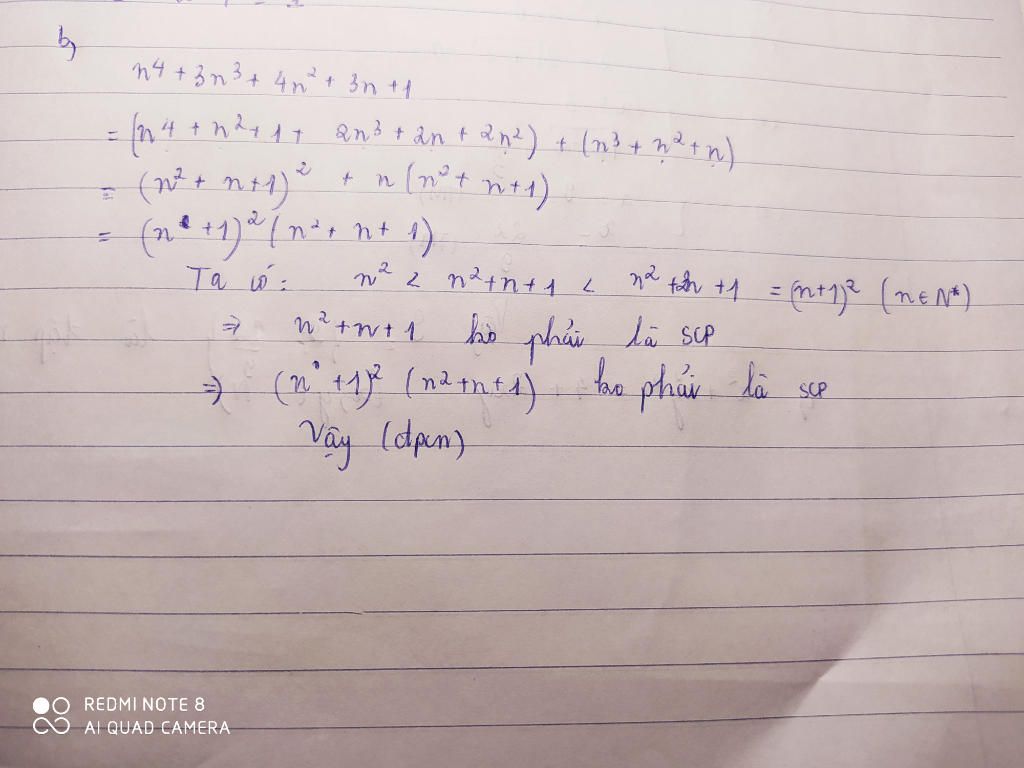 b,
n⁴ + 3n³ + 4n² + 3n + 1
= (n⁴ + n² + 1 + 2n³ + 2n + 2n²) + (n³ + n² + n)
= (n² + n + 1)² + n (n² + n + 1)
= (n + 1)² (n² + n + 1)
Ta có: n² < n² + n + 1 < n² + 2n + 1 = (n+1)² (n ∈ N*)
⇒ n² + n + 1 ko phải là SCP
⇒ (n + 1)² (n² + n + 1) ko phải là SCP
Vậy (đpcm)
REDMI NOTE 8
AI QUAD CAMERA